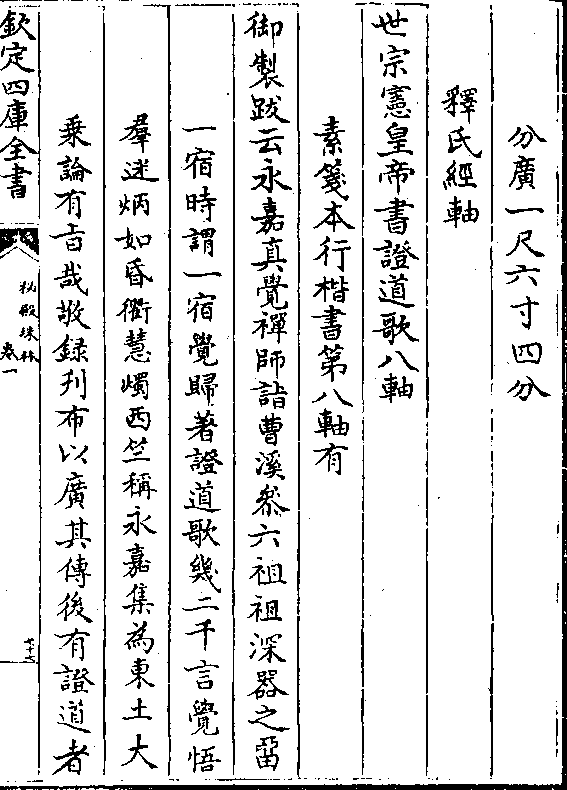 分廣一尺六寸四分
釋氏經軸
世宗憲皇帝書證道歌八軸
素箋本行楷書第八軸有
御製跋云永嘉真覺禪師詣曹溪叅六祖祖深器之留
一宿時謂一宿覺歸著證道歌幾二千言覺悟
羣迷炳如昏衢慧燭西竺稱永嘉集為東土大
乗論有㫖哉敬録刋布以廣其傳後有證道者
欽定四庫全書
秘殿珠林
卷一